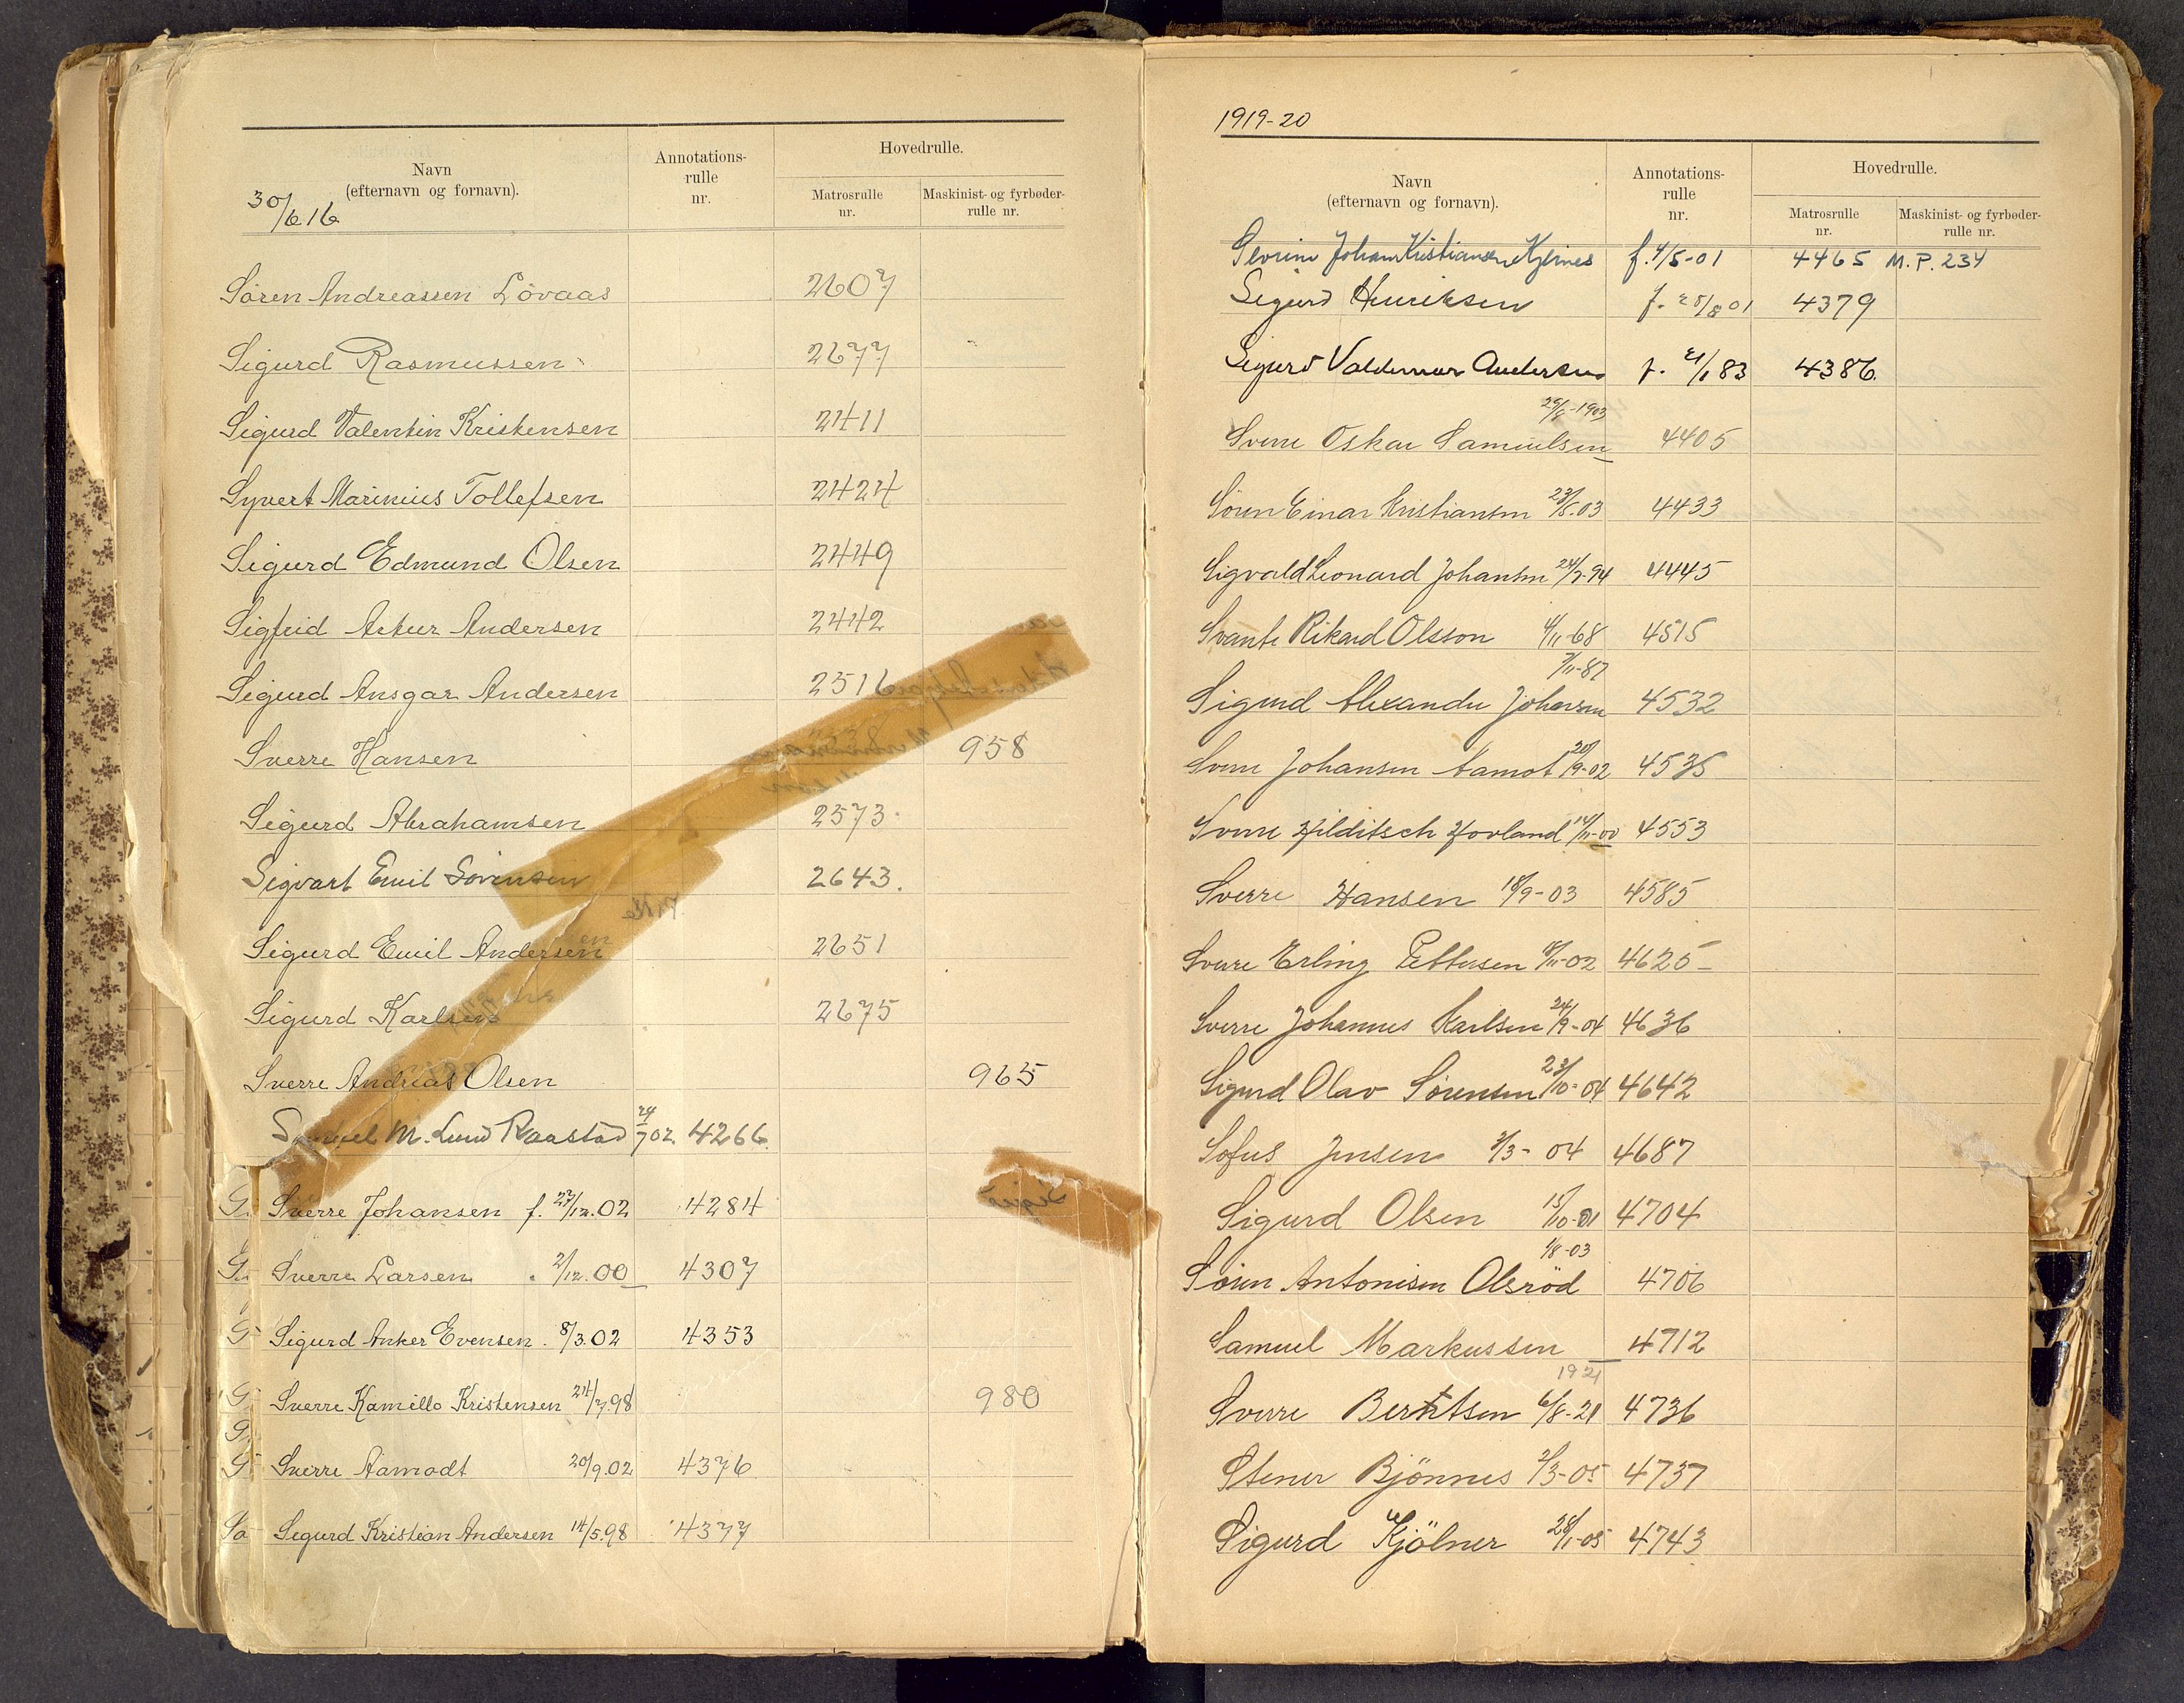 Navn
(efternavn og fornavn).
Annotations-
rulle
nr.
Hovedrulle.
Matrosrulle
nr.
Maskinist- og fyrbøder-
rulle nr.
30/6 16
Søren Andreassen Lövaas 2607
Sigurd Rasmussen 2677
Sigurd Valentin Kristensen 2411
Syvert Marinius Tollefsen 2424
Sigurd Edmund Olsen 2449
Sigfrid Artur Andersen 2442
Sigurd Ansgar Andersen 2516
Sverre Hansen 958
Sigurd Abrahamsen 2573.
Sigvart Emil Sörensen 2643.
Sigurd Emil Andersen 2651
Sigurd Karlsen 2675
Sverre Andreas Olsen 965
M. Lund Raastad 24/7 02 4266
G. Sverre Johansen f. 27/12.02 4284
G. Sverre Larsen 2/12.00 4307
G Sigurd Anker Evensen. 8/3.02 4353
G Sverre Kamillo Kristensen 24/7.98 980
G.
G Sverre Aamodt 20/9.02 4376
Sø Sigurd Kristian Andersen 14/5.98 4377
1919-20
Navn
(efternavn og fornavn).
Annotations-
rulle
nr.
Hovedrulle.
Matrosrulle
nr.
Maskinist- og fyrbøder-
rulle nr.
Johan Kristiansen f. 4/5-01 4465 M.P. 234
Sigurd Henriksen f. 28/8 01 4379
Sigurd Valdemar Andersen f. 21/1 83 4386.
29/8-1903
Sverre Oskar Samuelsen 4405
Sören Einar Kristiansen 23/5.03 4433
Sigvald Leonard Johansen 24/7-94 4445
Svante Rikard Olsson 4/11-68 4515
7/11-87
Sigurd Alexander Johansen 4532
Sverre Johansen Aamot 20/9-02 4535
Sverre Hilditsch Hovland 14/11-00 4553
Sverre Hansen 18/9-03 4585
Sverre Erling Pettersen 18/11-02 4625
Sverre Johannes Karlsen 24/9-04 4636
Sigurd Olav Sörensen 23/10-04 4642
Sofus Jensen 3/3-04 4687
Sigurd Olsen 15/10-01 4704
1/8-03
Sören Antonisen Olsröd 4706
Samuel Markussen 4712
1921
Sverre Berntsen 6/8-21 4736
Stener Bjönnes 2/3-05 4737
Sigurd Kjölner 28/1-05 4743